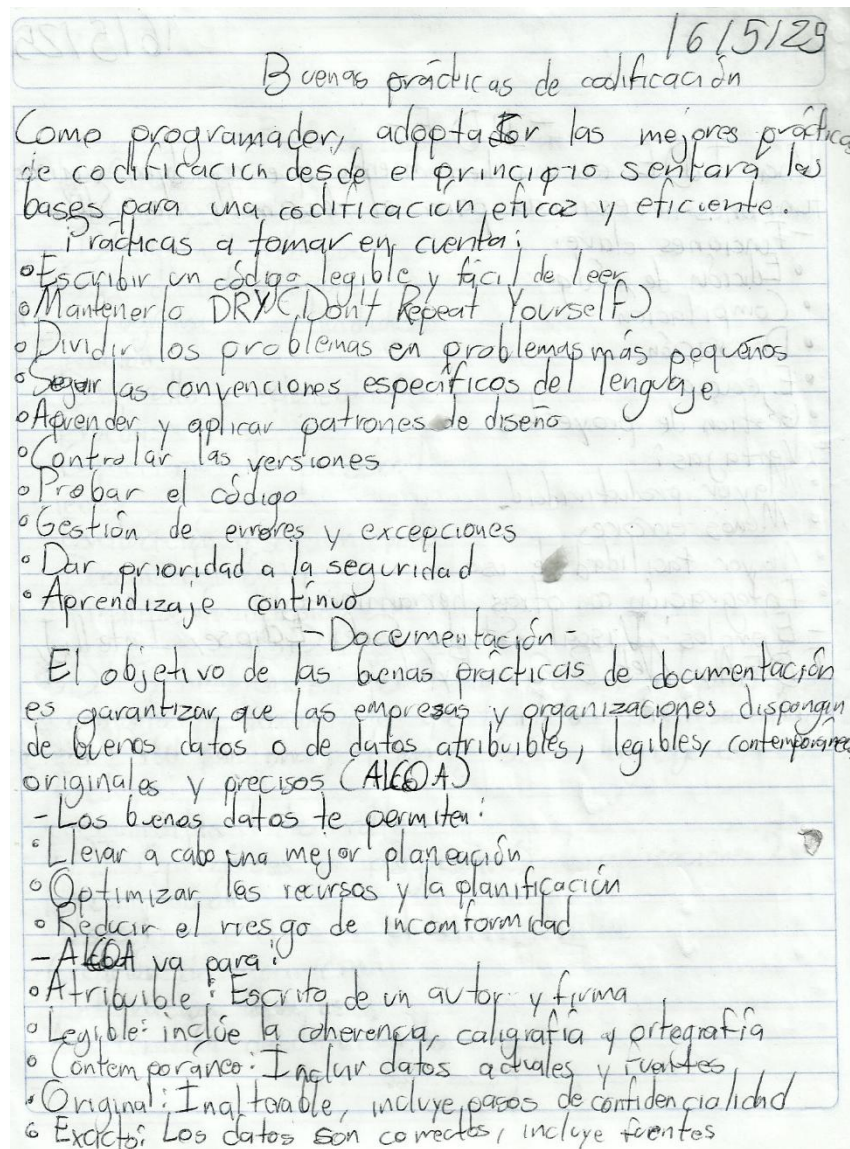 16/5/25
Buenas prácticas de codificación
Como programador, adoptar las mejores prácticas
de codificación desde el principio sentará las
bases para una codificación eficaz y eficiente.
Prácticas a tomar en cuenta:
•Escribir un código legible y fácil de leer
•Mantenerlo DRY (Don't Repeat Yourself)
•Dividir los problemas en problemas más pequeños
•Seguir las convenciones específicos del lenguaje
•Aprender y aplicar patrones de diseño
•Controlar las versiones
•Probar el código
•Gestión de errores y excepciones
•Dar prioridad a la seguridad
•Aprendizaje contínuo
-Documentación-
El objetivo de las buenas prácticas de documentación
es garantizar que las empresas y organizaciones dispongan
de buenos datos o de datos atribuibles, legibles, contemporáneos
originales y precisos (ALCOA)
-Los buenos datos te permiten:
•Llevar a cabo una mejor planeación
•Optimizar los recursos y la planificación
•Reducir el riesgo de incomformidad
-ALCOA va para:
•Atribuible: Escrito de un autor y firma
•Legible: inclúe la coherencia, caligrafía y ortegrafía
•Contemporáneo: Incluir datos actuales y fuentes,
•Original: Inalterable, incluye pasos de confidencialidad
•Exacto: Los datos son correctos, incluye fuentes